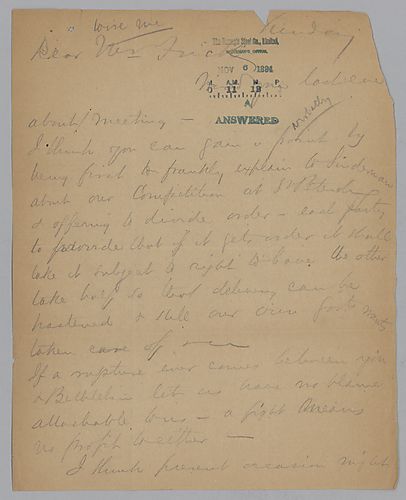 wise me
Sunday
Dear Mr Frick
The Carnegie Steel Co., Limited,
NOV 6 1894
A. M. P.
9 11 12
A
ANSWERED
about meeting —
I think you can gain a point by
being first to frankly explain to Linderman
about our Competition at
& offering to divide order — each party
to provide that if it gets order it shall
take it subject to right to have the other
take half so that delivery can be
hastened & still our own Govt wants
taken care of —
If a rupture ever comes between you
& Bethlehem let us have no blame
attachable to us — a fight means
no profit to either —
I think present occasion might